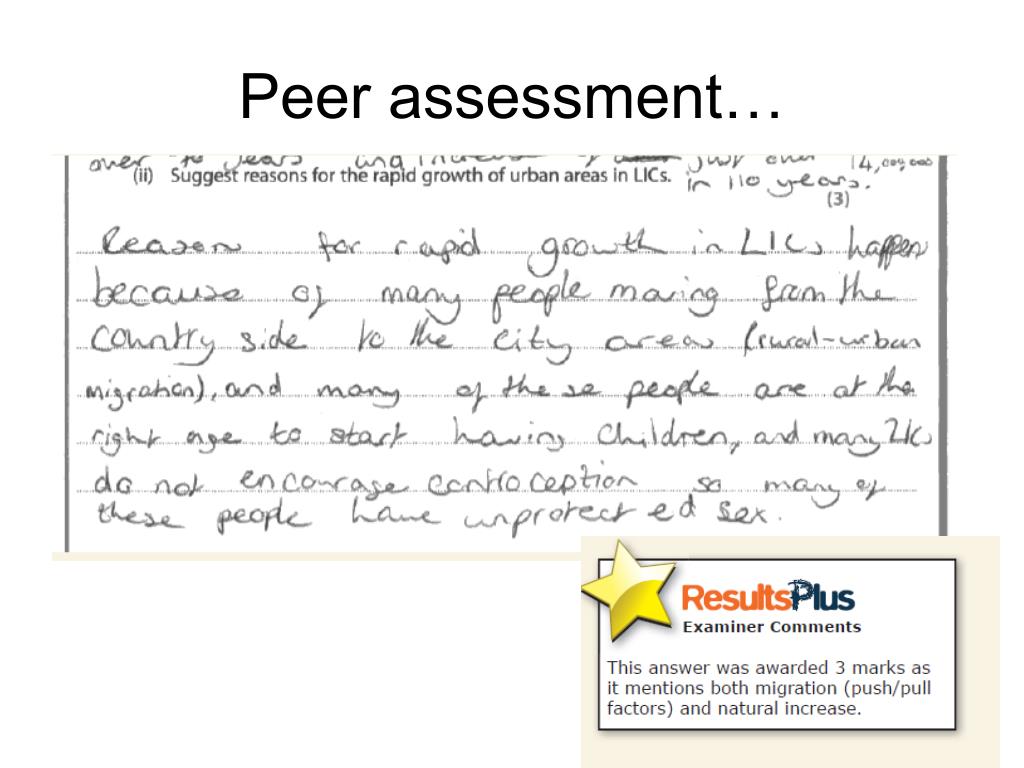 Peer assessment…
over years and increase of just over 14,000,000
(ii) Suggest reasons for the rapid growth of urban areas in LICs. in 110 years.
(3)
Reason for rapid growth in LICs happen
because of many people moving from the
country side to the city areas (rural-urban
migration), and many of these people are at the
right age to start having children, and many LICs
do not encourage contraception so many of
these people have unprotected sex.
ResultsPlus
Examiner Comments
This answer was awarded 3 marks as
it mentions both migration (push/pull
factors) and natural increase.